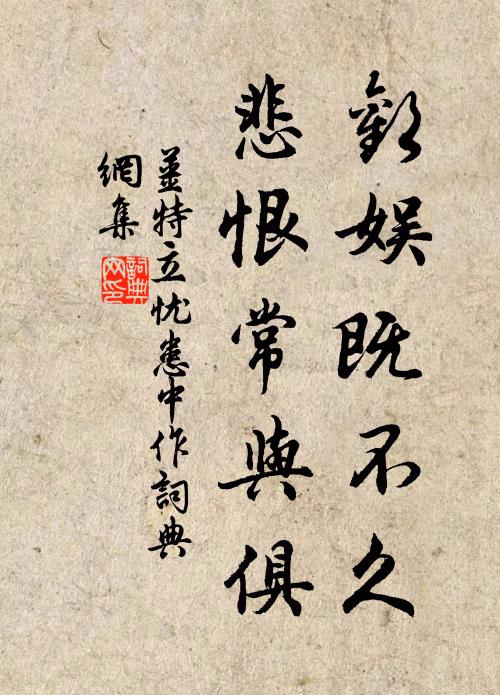 歡娱既不久
悲恨常與俱
姜特立忧患中作詞典
網集
詞典
网印